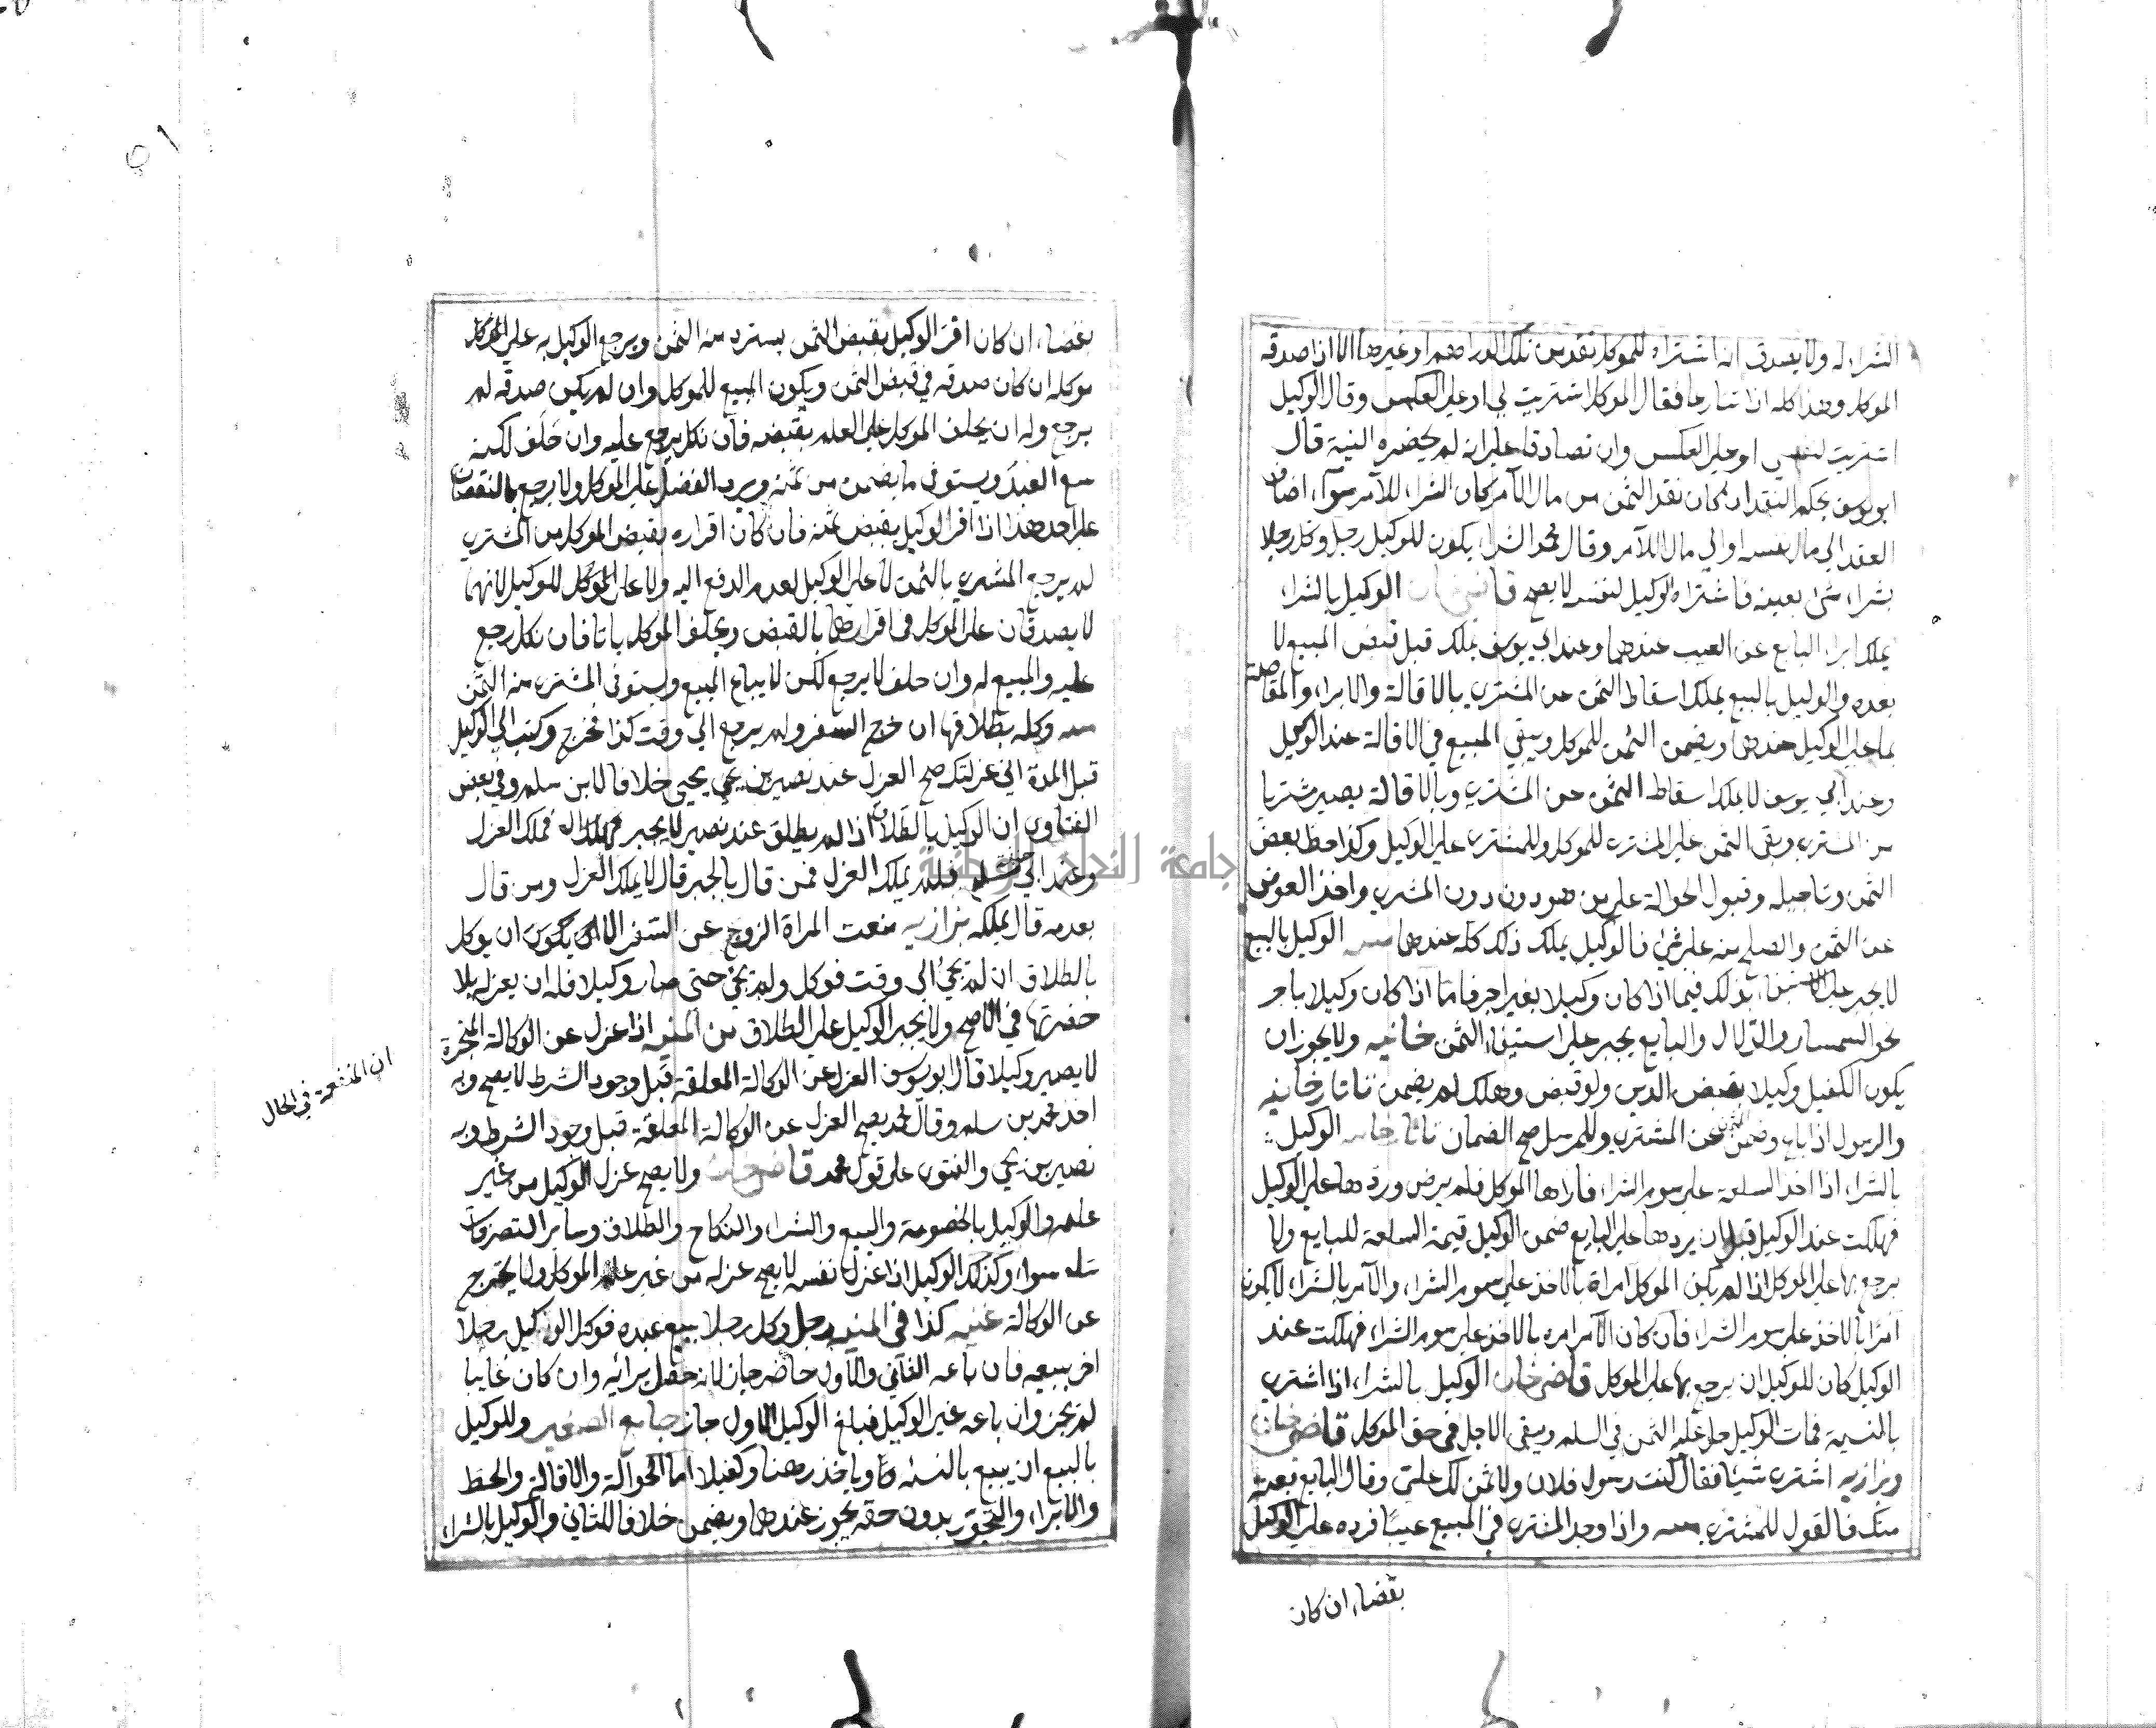 الشراء له ولا يصدق انه اشتراه للموكل نقد من تلك الدراهم او غيرها الا اذا صدقه
الموكل وهذا كله اذا تنازعا فقال الموكل اشتريت لي او على العكس وقال الوكيل
اشتريت لنفسي او على العكس وان تصادقا على انه لم يحضره النية قال
ابو يوسف يحكم النقد ان كان نقد الثمن من مال الآمر كان الشراء للآمر سواء اضاف
العقد الى مال نفسه او الى مال الآمر وقال محمد الشراء يكون للوكيل رجل وكل رجلا
بشراء شئ بعينه فاشتراه الوكيل لنفسه لا يصح قاضي خان الوكيل بالشراء
يملك ابراء البايع عن العيب عندهما وعند ابي يوسف يملك قبل قبض المبيع لا
بعده والوكيل بالبيع يملك اسقاط الثمن عن المشتري بالاقالة والابراء والمقاصة
بما على الوكيل عندهما ويضمن الثمن للموكل ويبقي المبيع في الاقالة عند الوكيل
وعند ابي يوسف لا يملك اسقاط الثمن عن المشتري وبالاقالة يصير مشتريا
من المشتري ويبقى الثمن على المشتري للموكل وللمشتري على الوكيل وكذا حط بعض
الثمن وتاجيله وقبول الحوالة على من هو دون دون المشتري واخذ العوض
عن الثمن والصلح منه على شئ فالوكيل يملك ذلك كله عندهما الوكيل بالبيع
لا يجبر على بذلك فيما اذا كان وكيلا بغير اجر فاما اذا كان وكيلا باجر
نحو السمسار والدلال والبايع يجبر على استيفاء الثمن خانيه ولا يجوز ان
يكون الكفيل وكيلا بقبض الدين ولو قبض وهلك لم يضمن تاتارخانيه
والرسول اذا باع وضمن الثمن عن المشتري وللمرسل صح الضمان تاتارخانيه الوكيل
بالشراء اذا اخذ السلعة على سوم الشراء فاراها الموكل فلم يرض وردها على الوكيل
فهلكت عند الوكيل قبل ان يردها على البايع ضمن الوكيل قيمة السلعة للبايع ولا
يرجع بها على الموكل اذا لم يكن الموكل امراه بالاخذ على سوم الشراء والآمر بالشراء لا يكون
آمرا بالاخذ على سوم الشراء فان كان الآمر امره بالاخذ على سوم الشراء فهلكت عند
الوكيل كان للوكيل ان يرجع بها على الموكل قاضي خان الوكيل بالشراء اذا اشتري
بالنسية فمات الوكيل حل عليه الثمن في السلم ويبقى الاجل في حق الموكل قاضي خان
وبزازيه اشترى شيئا فقال كنت رسول فلان ولا ثمن لك علي وقال البايع بعته
منك فالقول للمشتري واذا وجد المشتري في المبيع عيبا فرده على الوكيل
بقضاء ان كان
بقضاء ان كان اقر الوكيل بقبض الثمن يسترد منه الثمن ويرجع الوكيل به على الموكل
موكله ان كان صدقه في قبض الثمن ويكون المبيع للموكل وان لم يكن صدقه لم
يرجع وله ان يحلف الموكل على العلم بقبضه فان نكل يرجع عليه وان حلف لكنه
يبيع العبد ويستوفي ما يضمن من ثمنه ويرد الفضل على الموكل ولا يرجع بالنقصان
على احد هذا اذا اقر الوكيل بقبض ثمنه فان كان اقراره بقبض الموكل من المشتري
لم يرجع المشتري بالثمن لا على الوكيل لعدم الدفع اليه ولا على الموكل للوكيل لانهما
لا يصدقان على الموكل في اقرارهما بالقبض ويحلف الموكل باتا فان نكل رجع
عليه والمبيع له وان حلف لا يرجع لكن لا يباع المبيع ويستوفى المشتري منه الثمن
وكله بطلاقها ان خرج السفر ولم يرجع الى وقت كذا فخرج وكتب الى الوكيل
قبل المدة اني عزلتك صح العزل عند نصير بن يحيى خلافا لابن سلم وفي بعض
الفتاوى ان الوكيل بالطلاق اذا لم يطلق عند نصير لا يجبر فملك العزل
وعند ابن سلم فلم يملك العزل فمن قال بالجبر قال لا يملك العزل ومن قال
بعدمه قال يملكه بزازيه منعت المراة الزوج عن السفر الا ان يكون ان يوكل
بالطلاق ان لم يجئ الى وقت فوكل ولم يجئ حتى صار وكيلا فله ان يعزله بلا
حضرتها في الاصح ولا يجبر الوكيل على الطلاق من المنيه اذا عزل عن الوكالة المنجزة
لا يصير وكيلا قال ابو يوسف العزل عن الوكالة المعلقة قبل وجود الشرط لا يصح وبه
اخذ محمد بن سلم وقال محمد يصح العزل عن الوكالة المعلقة قبل وجود الشرط وبه
نصير بن يحي والفتوى على قول محمد قاضي خان ولا يصح عزل الوكيل من غير
علمه والوكيل بالخصومة والبيع والشراء والنكاح والطلاق وسائر التصرفات
سواء وكذلك الوكيل اذا عزل نفسه لا يصح عزله من غير علم الموكل ولا يخرج
عن الوكالة كذا في المنيه رجل وكل رجلا ببيع عبده فوكل الوكيل رجلا
اخر ببيعه فان باعه الثاني والاول حاضر جاز لانه حصل برائه وان كان غايبا
لم يجز وان باعه غير الوكيل فبلغ الوكيل الاول جاز جامع الصغير وللوكيل
بالبيع ان يبيع بالنسئه وياخذ رهنا وكفيلا اما الحوالة والاقالة والحط
والابراء والتجوز بدون حقه يجوز عندهما ويضمن خلافا للثاني والوكيل بالشراء
ان المنفعة في الحال
جامعة النجاح الوطنية